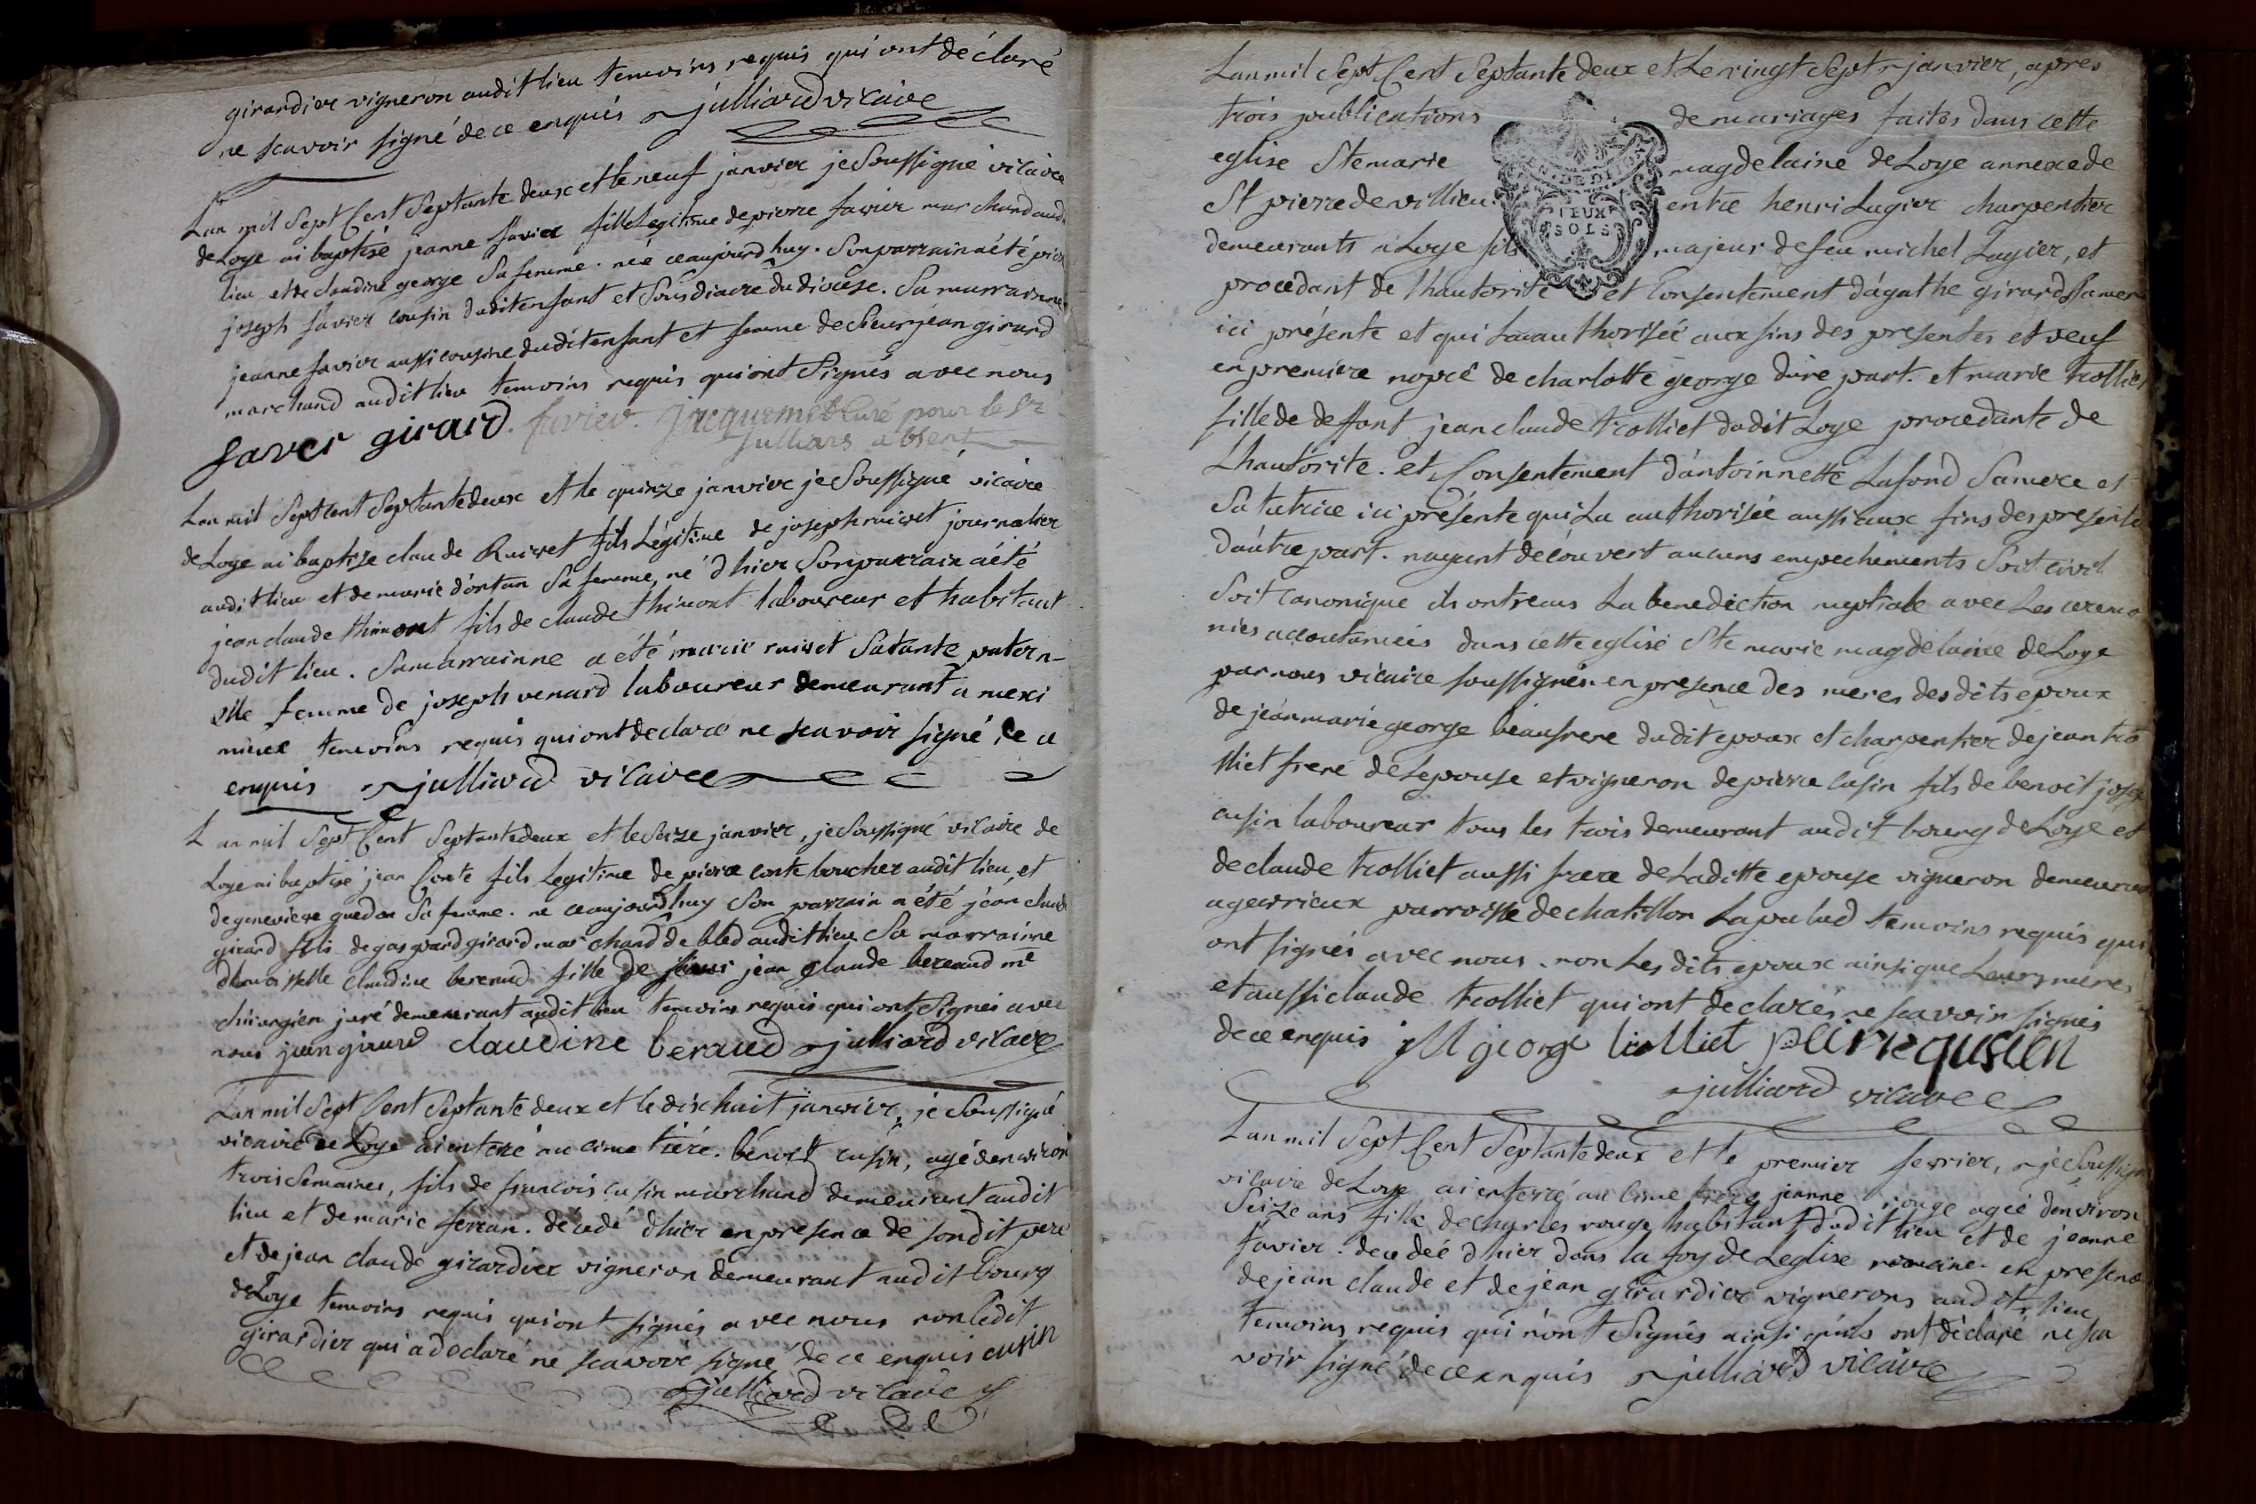 girardier vigneron audit lieu temoins requis qui ont déclaré
ne scavoir signé de ce enquis julliard vicaire
Lan mil Sept Cent Septante deux et le neuf janvier je Soussigné vicaire
de Loye ai baptisé jeanne favier fille Legitime de pierre favier marchand aud
lieu et de claudine george Sa femme. née ceaujourdhuy. Son parrain a été pierre
joseph favier cousin dudit enfant et Sousdiacre du diocese. Sa marrainne
jeanne favier aussi cousine dudit enfant et femme de Sieur jean girard
marchand audit lieu temoins requis qui ont Signés avec nous
faver girard. favier. Jacquemet Curé pour le Sr
julliard absent
Lan mil Sept Cent Septante deux et le quinze janvier je Soussigné vicaire
de Loye ai baptize claude Ruivet fils Légitime de joseph ruivet journalier
audit lieu et de marie dortan Sa femme, né d'hier Son parrain a été
jean claude thimont fils de claude thimont laboureur et habitant
dudit lieu. Sa marrainne a été marie ruivet Sa tante patern-
elle femme de joseph venard laboureur demeurant a mexi
mieux temoins requis qui ont declaré ne scavoir signé de ce
enquis julliard vicaire
Lan mil Sept Cent Septante deux et le Seize janvier, je Soussigné vicaire de
Loye ai baptisé jean Conte fils Legitime de pierre conte boucher audit lieu, et
de genevieve guedon Sa femme. né ceaujourdhuy Son parrain a été jean claude
girard fils de gaspard girard marchand de bled audit lieu Sa marrainne
dmoisselle claudine beraud fille de jean glaude beraud me
chirurgien juré demeurant audit lieu temoins requis qui ont Signés avec
nous jean girard claudine beraud julliard vicaire
Lan mil Sept Cent Septante deux et le dix huit janvier, je Soussigné
vicaire de Loye ai enterré au cimetiere. benoit cusin, agé denviron
trois Semaines, fils de francois cusin marchand demeurant audit
lieu et de marie ferran. décédé d'hier en presence de sondit pere
et de jean claude girardier vigneron demeurant audit bourg
de Loye temoins requis qui ont signés avec nous non ledit
girardier qui a declaré ne scavoir signé de ce enquis cusin
julliard vicaire
Lan mil Sept Cent Septante deux et Le vingt Sept janvier, apres
trois publications de mariages faites dans cette
eglise Ste marie magdelaine de Loye annexe de
St pierre de villieu. entre henri Lugier charpentier
demeurants a Loye fils majeur de feu michel Lugier, et
procedant de l'hautorité et Consentement d'agathe girard Sa mere
ici présente et qui La authorisée aux fins des presentes et veuf
en premiere nopce de charlotte george dune part. et marie trolliet
fille de deffont jean claude trolliet dudit Loye procedante de
L'hautorite. et Consentement d'antoinnette Lafond Sa mere et
Sa tutrice ici présente qui La authorisée aussi aux fins des presente
d'autre part. nayant découvert aucuns empechements Soit civil
Soit Canonique ils ont recus La benediction nuptiale avec Les ceremo
nies accoutumées dans cette eglise Ste marie magdelaine de Loye
par nous vicaire soussignés en presence des meres des dits epoux
de jean marie george beaufrere dudit epoux et charpentier de jean tro
lliet frere de Lepouse et vigneron de pierre cusin fils de benoit joseph
cusin laboureur tous les trois demeurant audit bourg de Loye et
de claude trolliet aussi frere de Laditte epouse vigneron demeurant
a gevrieux parroisse de chatillon La palud temoins requis qui
ont signés avec nous. non Les dits epoux ainsi que Leurs meres
et aussi claude trolliet qui ont declarés ne scavoir signés
de ce enquis jM george trolliet pierre qusien
julliard vicaire
Lan mil Sept Cent Septante deux et le premier fevrier, je Soussigné
vicaire de Loye ai enterré au Cimetiere jeanne rouge agée denviron
Seize ans fille de charles rouge habitant dudit lieu et de jeanne
favier. decedée d'hier dans la foy de Leglise romaine. en presence
de jean claude et de jean girardier vignerons audit lieu
temoins requis qui n'ont Signés ainsi quils ont déclaré ne sca
voir signé de ce enquis julliard vicaire
DEUX
SOLS